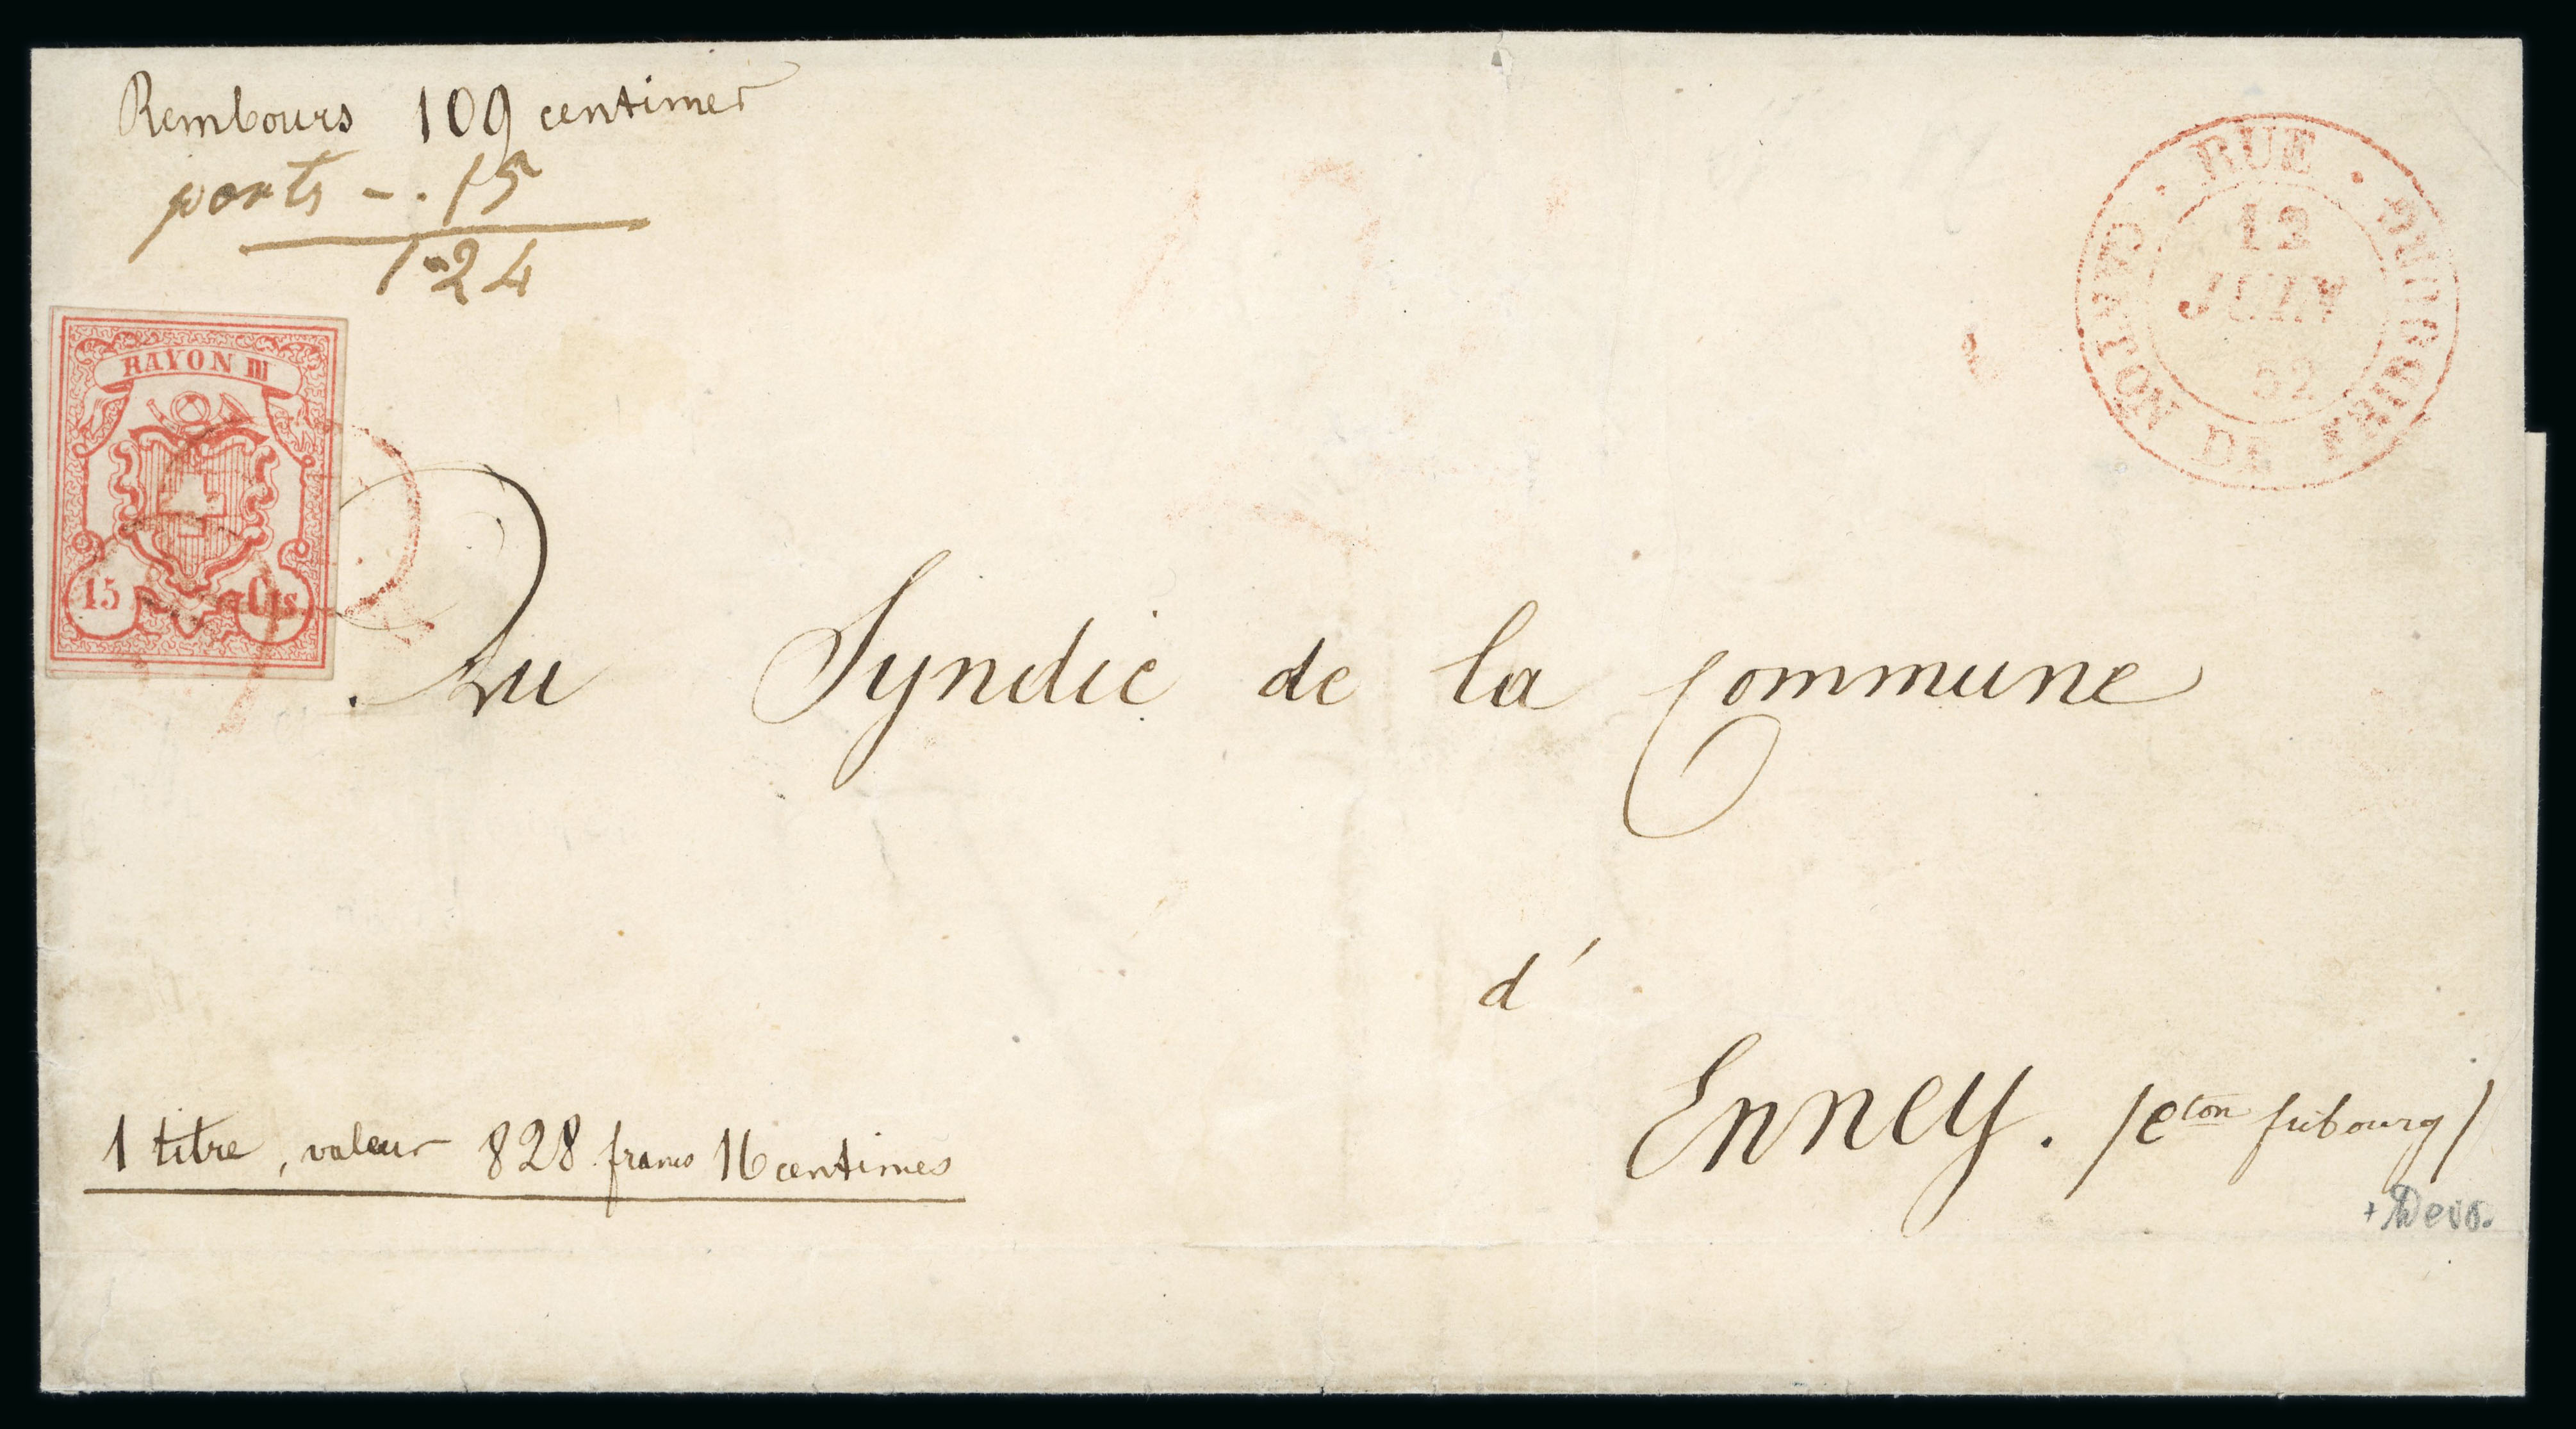 Rembours 109 centimes
ports - . 15
1-24
RAYON III
15 Cts
RUE
CANTON DE FRIBOURG
12
JUIN
52
Au Syndic de la commune
d'
Enney. /Cton fribourg/
1 titre, valeur 828 francs 16 centimes